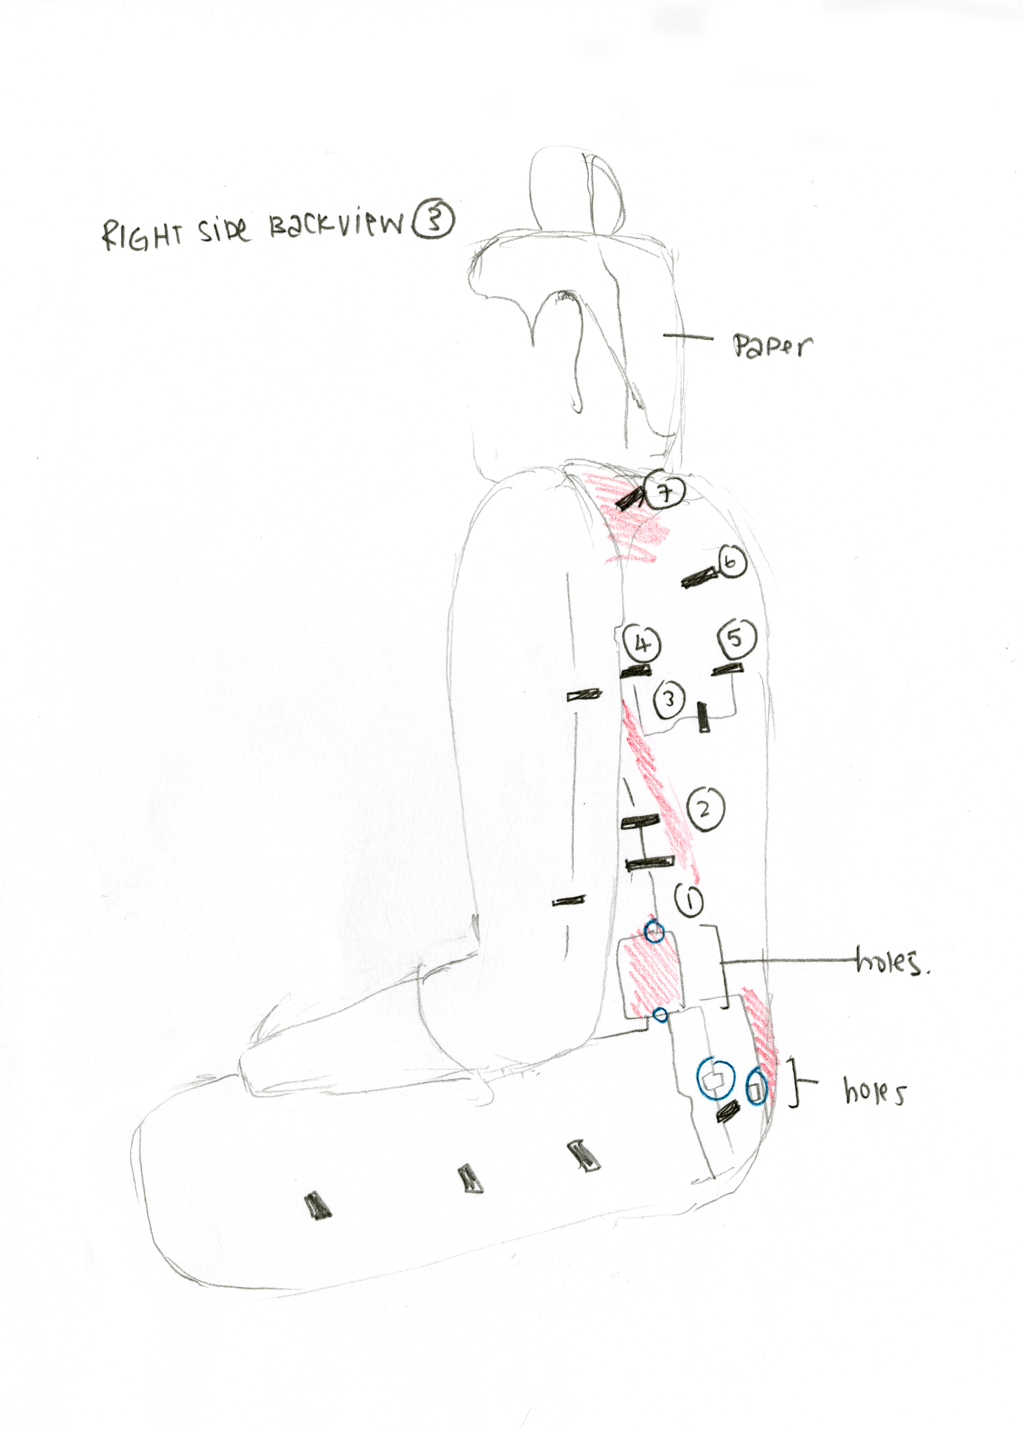 RIGHT SIDE BACKVIEW ③
paper
⑦
⑥
④ ⑤
③
②
①
holes.
holes